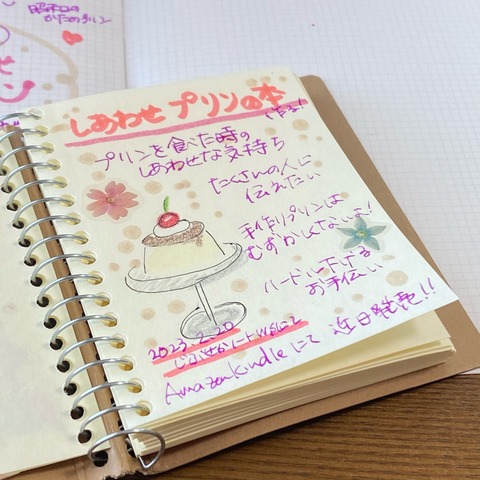 昭和の
かためプリン
しあわせ プリンの本
作る!
プリンを食べた時の
しあわせな気持ち
たくさんの人に
伝えたい
手作りプリンは
むずかしくないよ!
ハードル下げる
お手伝い
2023.2.20
じぶんノートWSにて
Amazon Kindleにて 近日発売!!